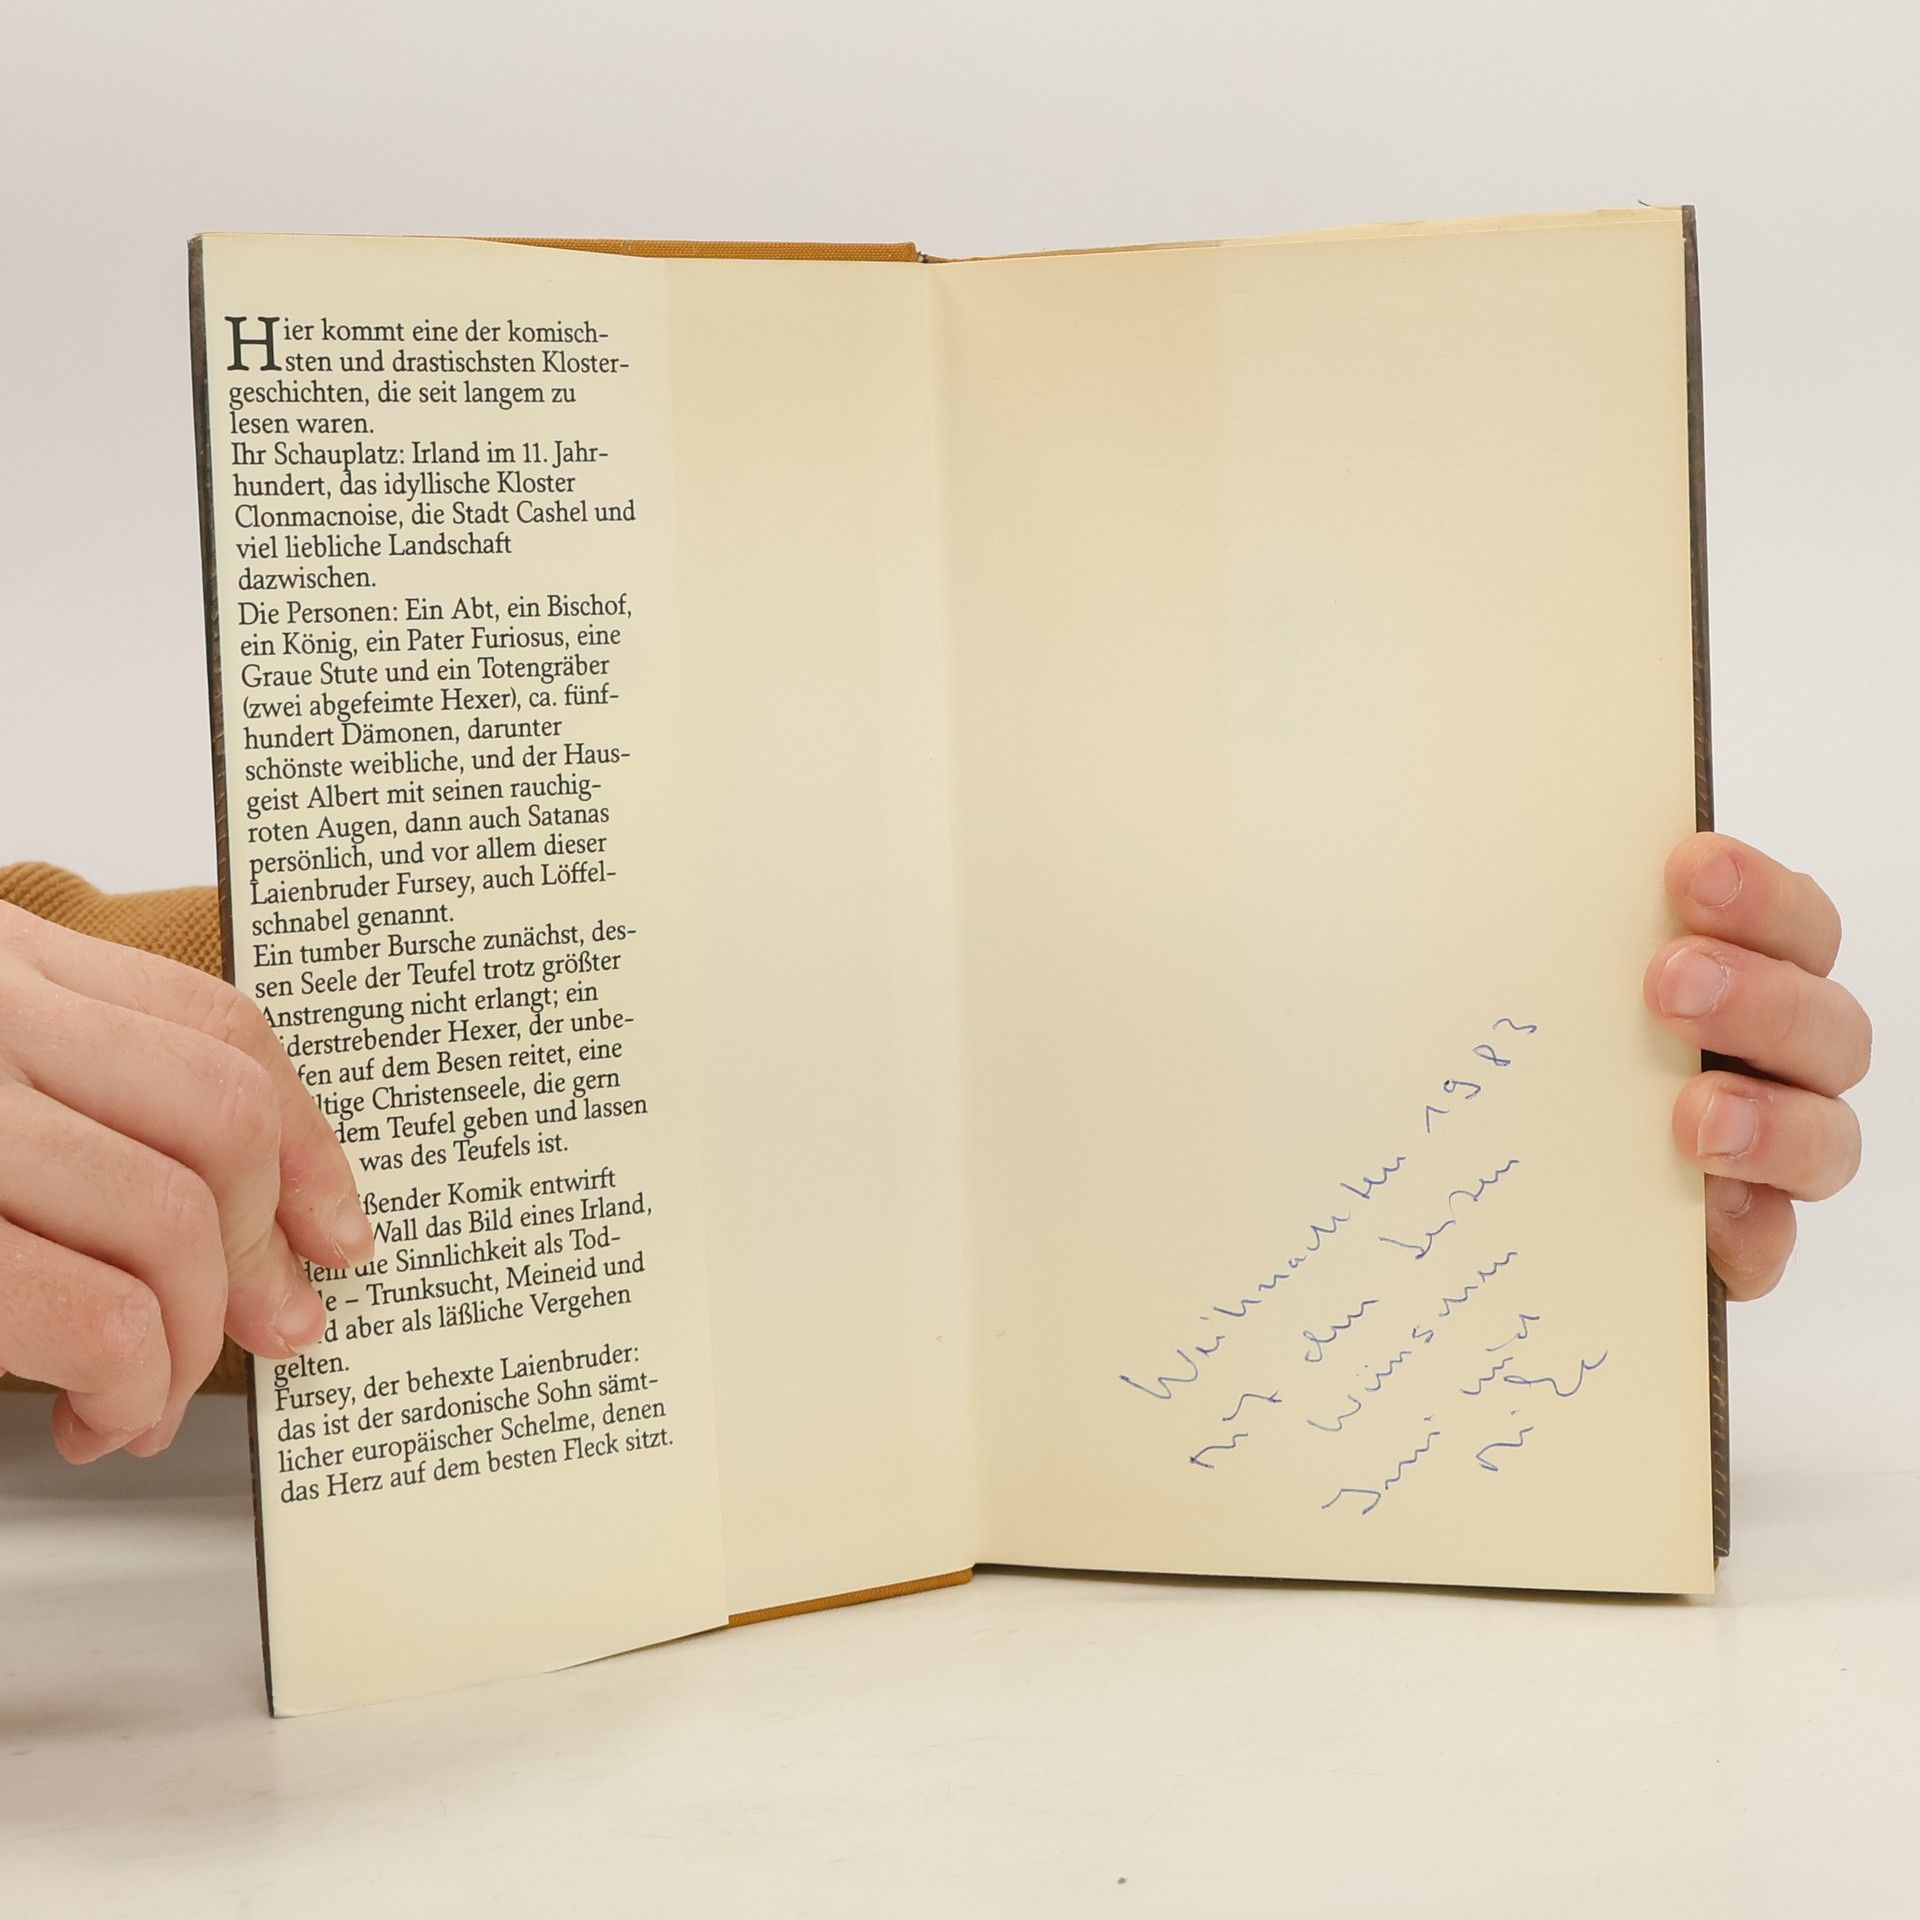 Hier kommt eine der komisch-
sten und drastischsten Kloster-
geschichten, die seit langem zu
lesen waren.
Ihr Schauplatz: Irland im 11. Jahr-
hundert, das idyllische Kloster
Clonmacnoise, die Stadt Cashel und
viel liebliche Landschaft
dazwischen.
Die Personen: Ein Abt, ein Bischof,
ein König, ein Pater Furiosus, eine
Graue Stute und ein Totengräber
(zwei abgefeimte Hexer), ca. fünf-
hundert Dämonen, darunter
schönste weibliche, und der Haus-
geist Albert mit seinen rauchig-
roten Augen, dann auch Satanas
persönlich, und vor allem dieser
Laienbruder Fursey, auch Löffel-
schnabel genannt.
Ein tumber Bursche zunächst, des-
sen Seele der Teufel trotz größter
Anstrengung nicht erlangt; ein
iderstrebender Hexer, der unbe-
fen auf dem Besen reitet, eine
ltige Christenseele, die gern
dem Teufel geben und lassen
was des Teufels ist.
ßender Komik entwirft
Wall das Bild eines Irland,
dem die Sinnlichkeit als Tod-
e – Trunksucht, Meineid und
d aber als läßliche Vergehen
gelten.
Fursey, der behexte Laienbruder:
das ist der sardonische Sohn sämt-
licher europäischer Schelme, denen
das Herz auf dem besten Fleck sitzt.
Weihnachten 1983
mit den besten
Wünschen